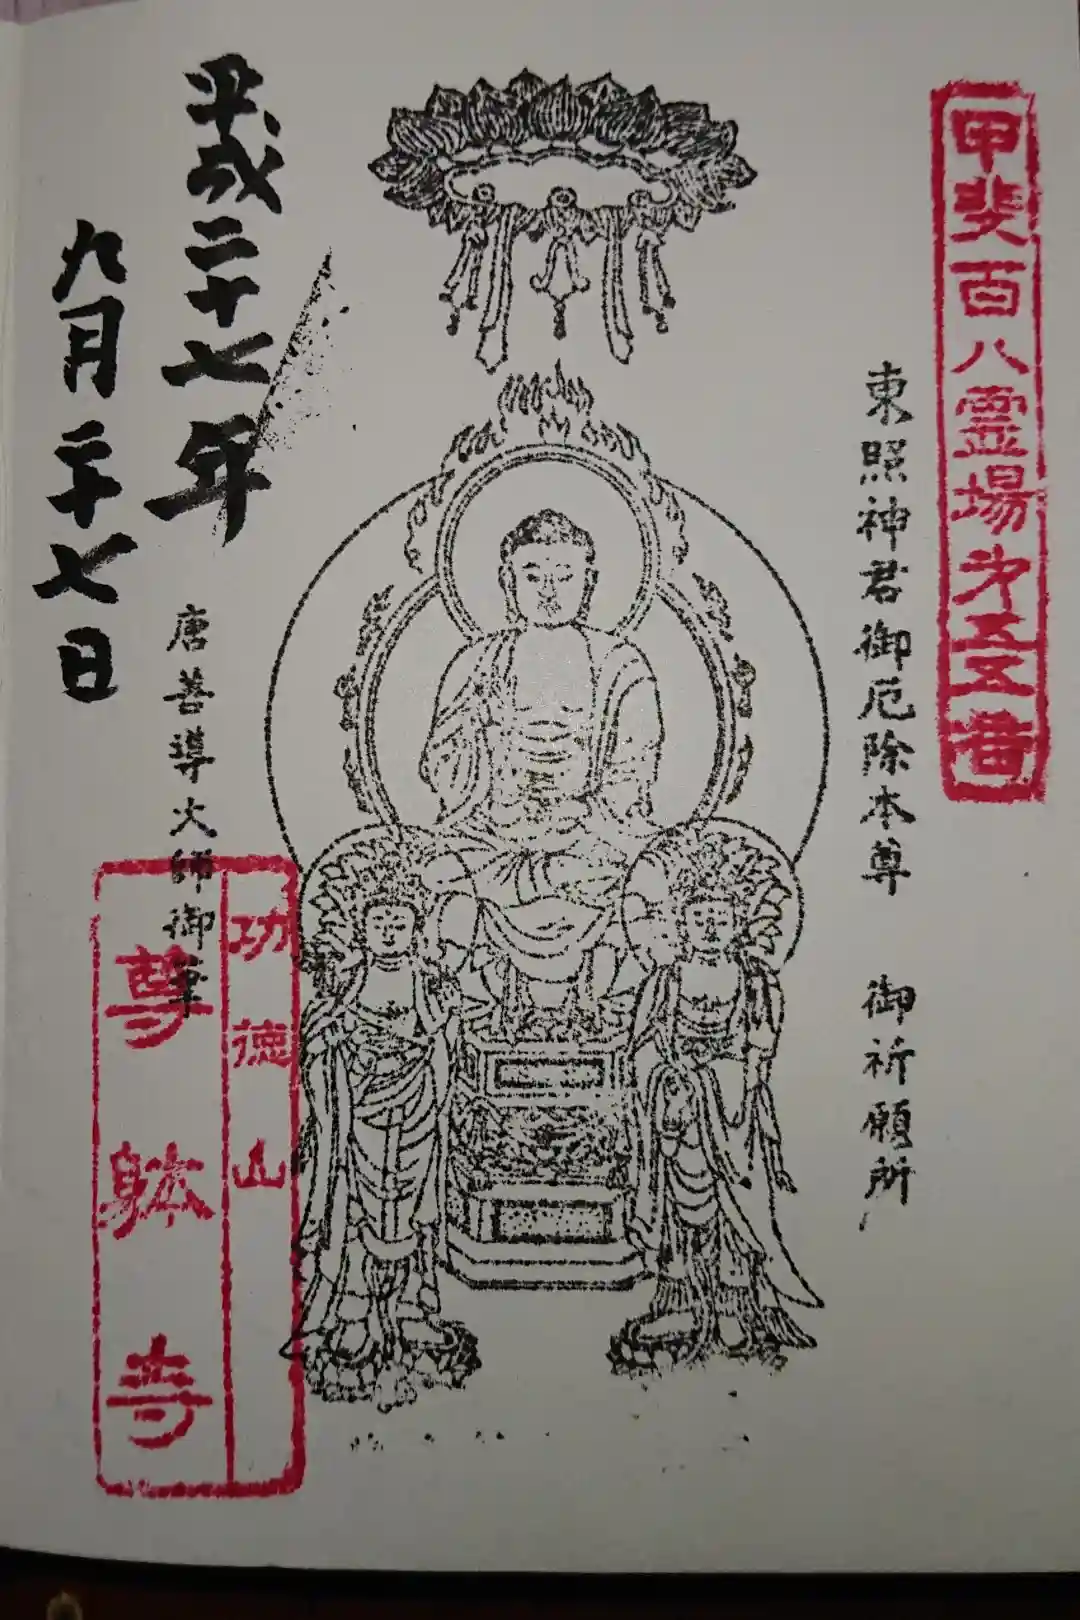 甲斐百八霊場第五五番
東照神君御厄除本尊 御祈願所
唐善導大師御筆
平成二十七年
九月二十七日
功徳山
尊躰寺